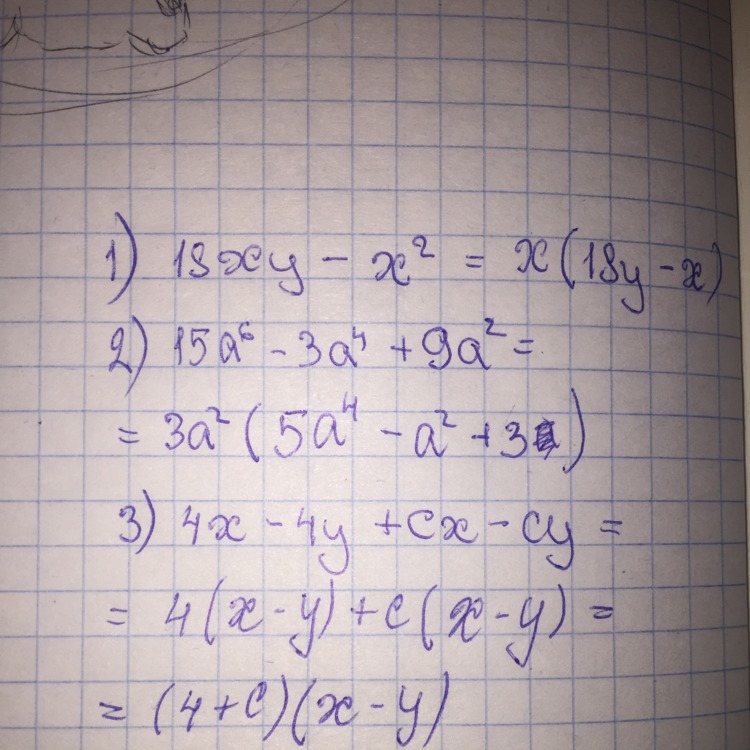 1) 18xy - x² = x(18y - x)
2) 15a⁶ - 3a⁴ + 9a² =
= 3a²(5a⁴ - a² + 3)
3) 4x - 4y + cx - cy =
= 4(x - y) + c(x - y) =
= (4 + c)(x - y)